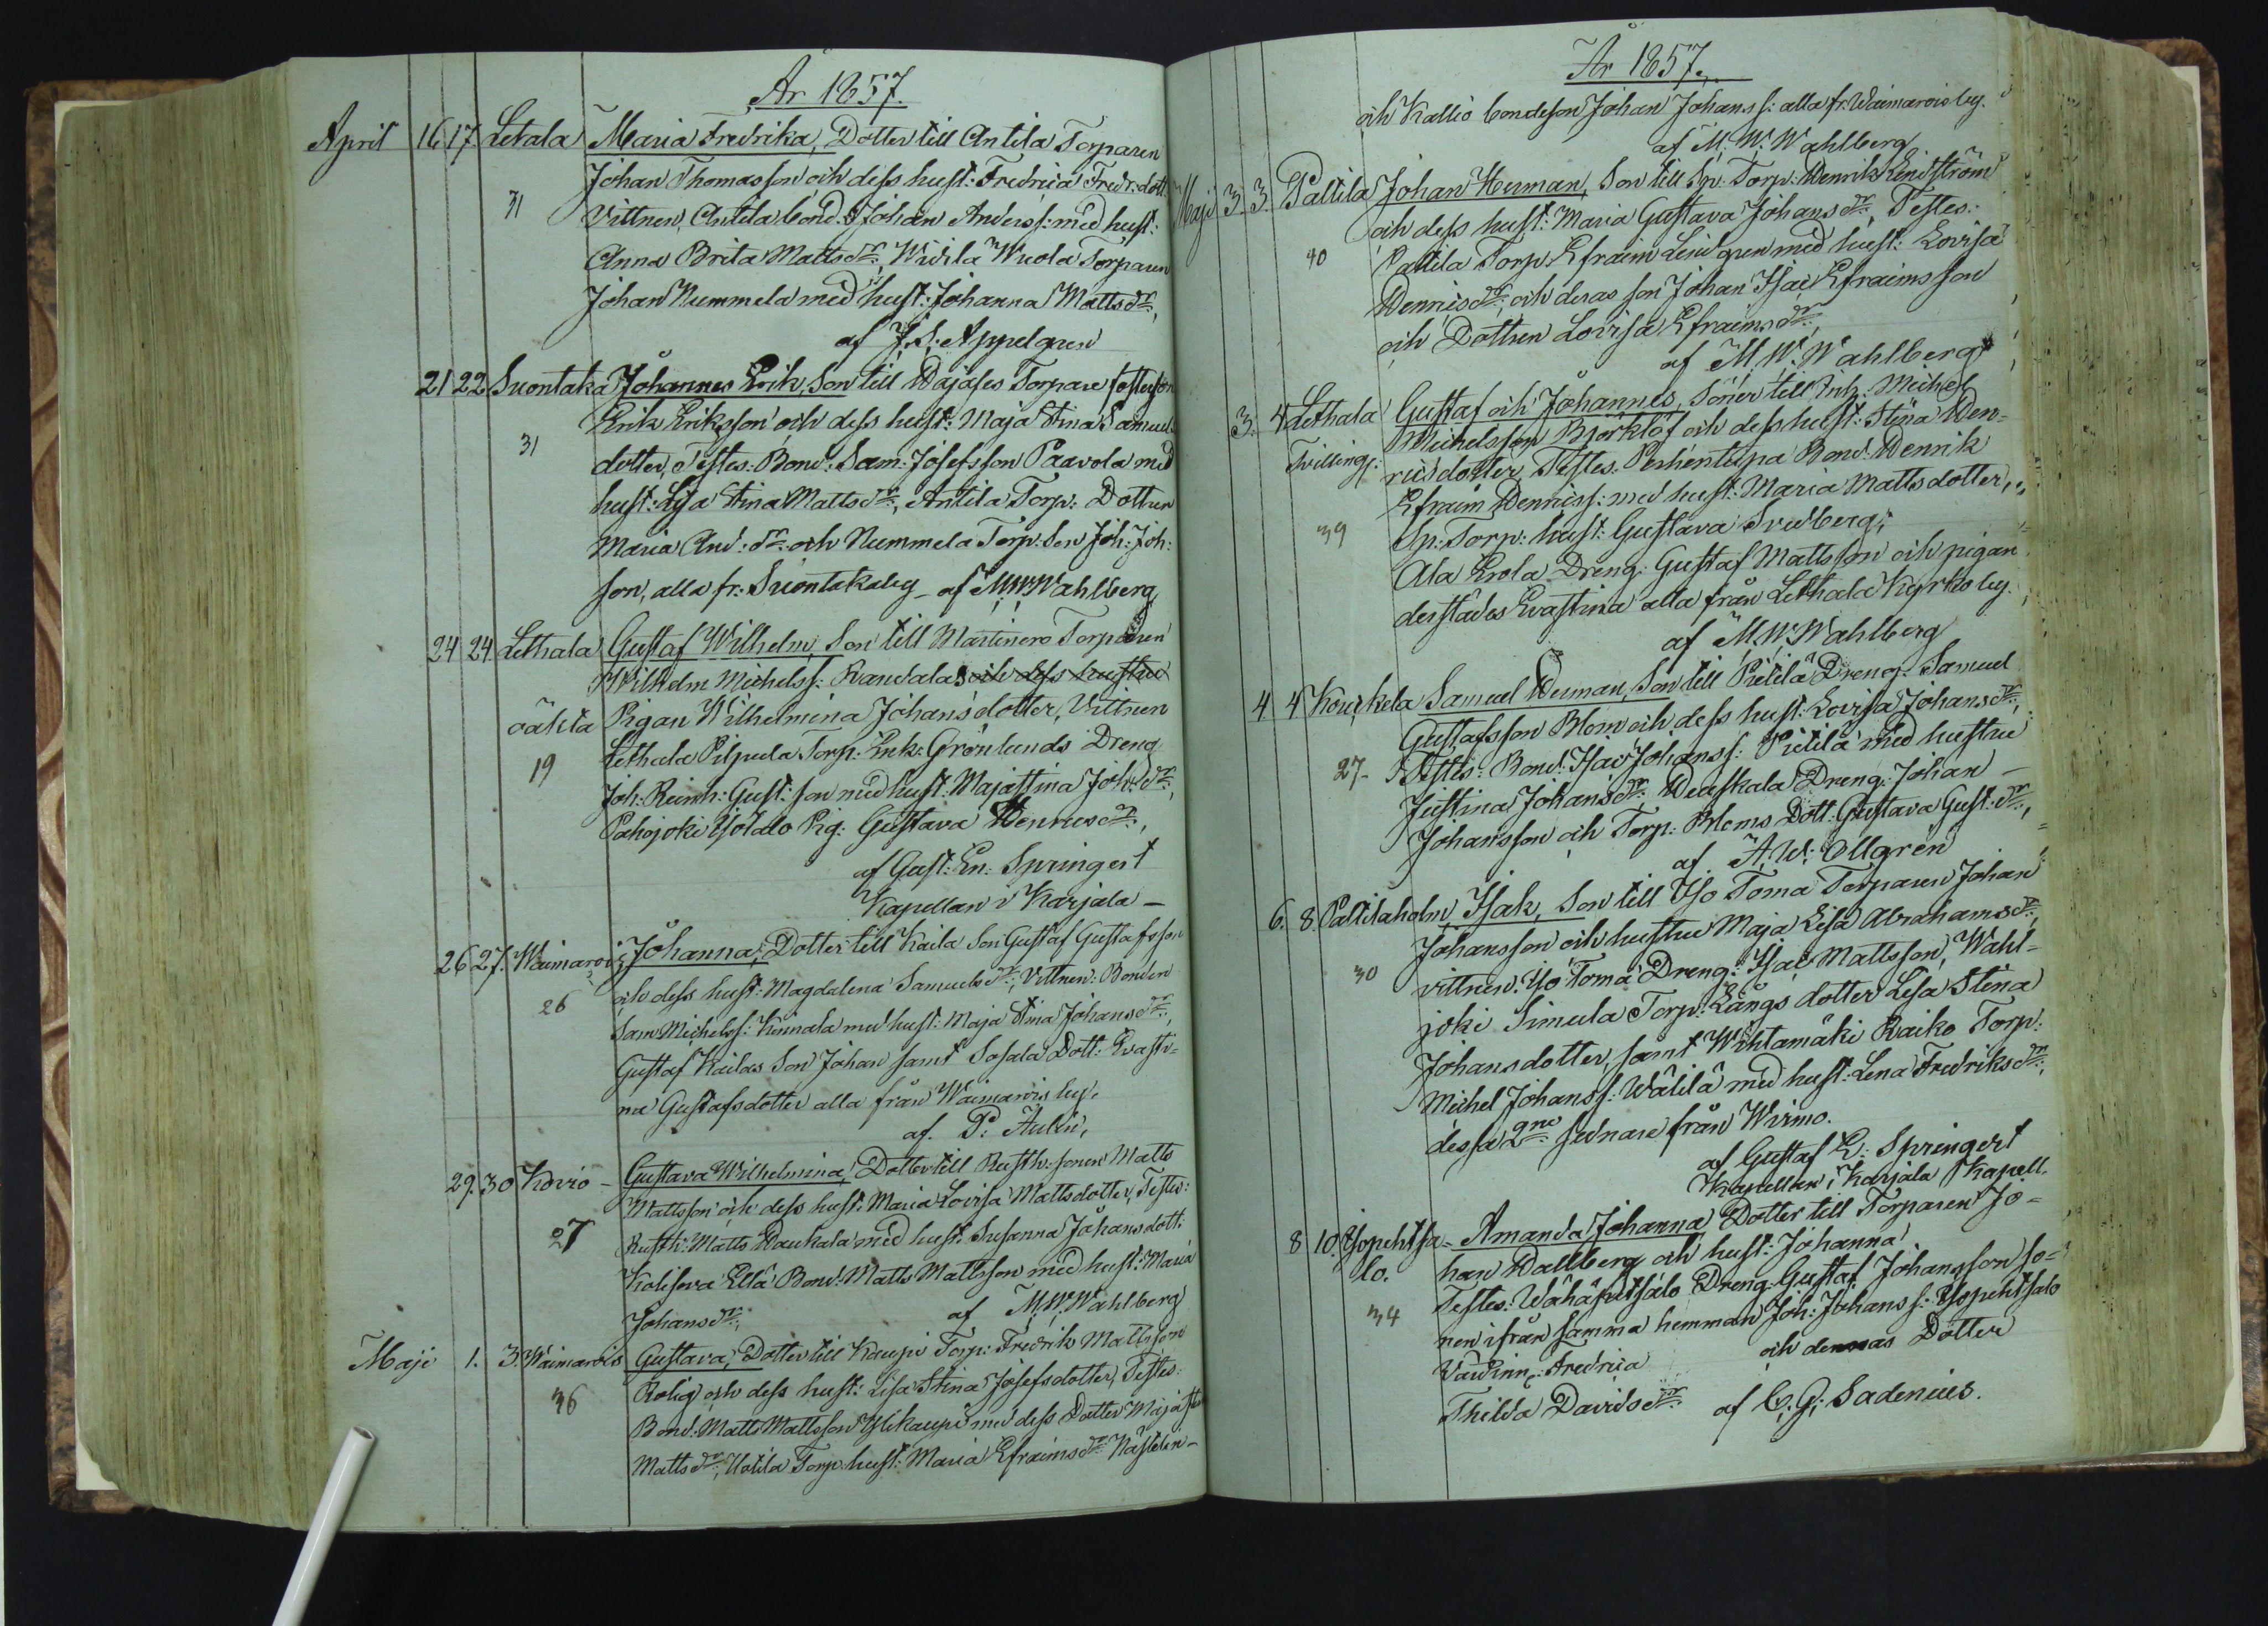 År 1857.
April 16 17 Letala Maria Fredrika, Dotter till Antila Torparen
Johan Thomasson och dess hust: Fredrica Fredr:dott:
31 Vittnen, Antila bond: Johan Anderss: med hust:
Anna Brita Mattsdr:, Widila Wuola Torparen
Johan Nummela med hust: Johanna Mattsdr:,
af J. S. Appelgren
21 22 Suontaka Johannes Erik, Son till Pajases Torpare
Erik Eriksson och dess hust: Maja Stina Samuels
31 dotter, Testes: Bond: Sam: Josefsson Paavola med
hust: Lisa Stina Mattsdr:, Antila Torp: Dottren
Maria And: dr: och Nummela Torp: Son Joh: Joh:
son, alla fr: Suontakaby af M. W. Wahlberg
24 24 Lethala Gustaf Wilhelm, Son till Martinero Torparen
Wilhelm Michelss: Randalas och dess hustru
oäkta Pigan Wilhelmina Johansdotter, Vittnen
Lethala Pilpula Torp: Enk: Grönlunds Dreng
19 Joh: Reinh: Gust: son med hust: Majastina Joh: dr:,
Pahojoki Yöldlo Pig: Gustava Henricsdr:,
af Gust: En: Springert
Kapellan i Karjala –
26 27. Waimarois Johanna, Dotter till Kaila Son Gustaf Gustafsson
26 och dess hust: Magdalena Samuelsdr:, Vittnen: Bonden
Sam Michelss: Kinnala med hust: Maja Stina Johansdr:,
Gustaf Kailas Son Johan samt Sosala Dott: Evasti=
na Gustafsdotter alla från Waimarois by.
af P: Aulin,
29. 30 Kovio – Gustava Wilhelmina, Dotter till Rusth: sonen Matts
Mattsson och dess hust: Maria Lovisa Mattsdotter, Testes:
27 Rusth: Matts Haukala med hust: Susanna Johansdott:
Kolisova Ellä Bond: Matts Mattsson med hust: Maria
Johansdr:, af M. W. Wahlberg
Maji 1. 3. Waimarois Gustava, Dotter till Kaupi Torp: Fredrik Mattsson
36 Rolig och dess hust: Lisa Stina Josefsdotter, Testes:
Bond: Matts Mattsson Ylikaupi med dess Dotter Maja
Mattsdr:, Uotila Torp: hust: Maria Efraimsdr:
År 1857.
och Kallio bondeson Johan Johanss: alla fr: Waimarois by.
af M. W. Wahlberg
Maji 3. 3. Paltila Johan Herman, Son till Sp: Torp: Henrik Lindström
och dess hust: Maria Gustava Johansdr:, Testes:
40 Paltila Torp Efraim Lindgren med hust: Lovisa
Henricsdr:, och deras son Johan Isac Efraimsson
och Dottren Lovisa Efraimsdr:,
af M. W. Wahlberg
3. 4 Lethala Gustaf och Johannes, Söner till Inh: Michel
Michelsson Björklöf och dess hust: Stina Hen=
Tvilling: ricsdotter, Testes: Perhentupa Bond: Henrik
Efraim Henricss: med hust: Maria Mattsdotter,
39 Sp: Torp: hust: Gustava Sredberg,
Ala Erola Dreng: Gustaf Mattsson och pigan
derstädes Evastina alla från Lethala Kyrkoby.
af M. W. Wahlberg
4 4 Kouckela Samuel Herman, Son till Pietilä Dreng: Samuel
Gustafsson Blom och dess hust: Lovisa Johansdr:,
27- Testes: Bond: Isac Johanss: Pietilä med hustru
Justina Johansdr:, Heaskala Dreng: Johan –
Johansson och Torp: Bloms Dott: Gustava Gust: dr:,
af A. W. Ollgren
6. 8 Paltilaholm Isak, Son till Iso Toma Torparen Johan
Johansson och hustru Maja Lisa Abrahamsdr:,
30 vittnen: Iso Toma Dreng: Isac Mattsson, Wahl=
joki Simula Torp: Längs dotter Lisa Stina
Johansdotter, samt Wihtamäki Raiko Torp:
Michel Johanss: Wälilä med hust: Lena Fredriksdr:,
dessa 2ne sednare från Wirmo.
af Gustaf E: Springert
Kapellan i Karjala Kapell.
8 10 Ylopehtsa= Amanda Johanna Dotter till Torparen Jo=
lo. han Dallberg och hust: Johanna
Testes: Wähäpetsalo Dreng: Gustaf Johansson so=
34 nen ifrån samma hemman Joh: Johanss: Ylopehtsalo
Värdinn: Fredrica och dennas Dotter
Thilda Davidsdr: af C. G. Sadenius.